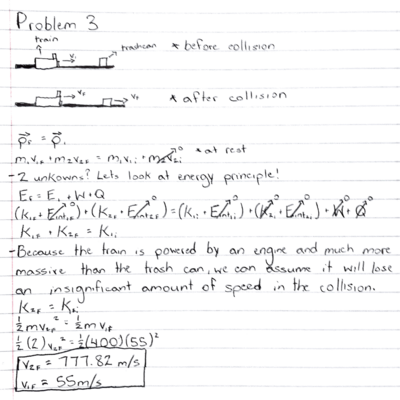 Problem 3
train
trashcan
* before collision
v₁ᵢ
* after collision
v₁F
v₂F
p⃗F = p⃗ᵢ
m₁v₁F + m₂v₂F = m₁v₁ᵢ + m₂v₂ᵢ⁰ * at rest
- 2 unkowns? Lets look at energy principle!
EF = Eᵢ + W + Q
(K₁F + Eint₁F⁰) + (K₂F + Eint₂F⁰) = (K₁ᵢ + Eint₁ᵢ⁰) + (K₂ᵢ⁰ + Eint₂ᵢ⁰) + W⁰ + Q⁰
K₁F + K₂F = K₁ᵢ
- Because the train is powered by an engine and much more
massive than the trash can, we can assume it will lose
an insignificant amount of speed in the collision.
K₂F = K₁ᵢ
½mv₂F² = ½mv₁F
½(2)v₂F² = ½(400)(55)²
v₂F = 777.82 m/s
v₁F = 55m/s